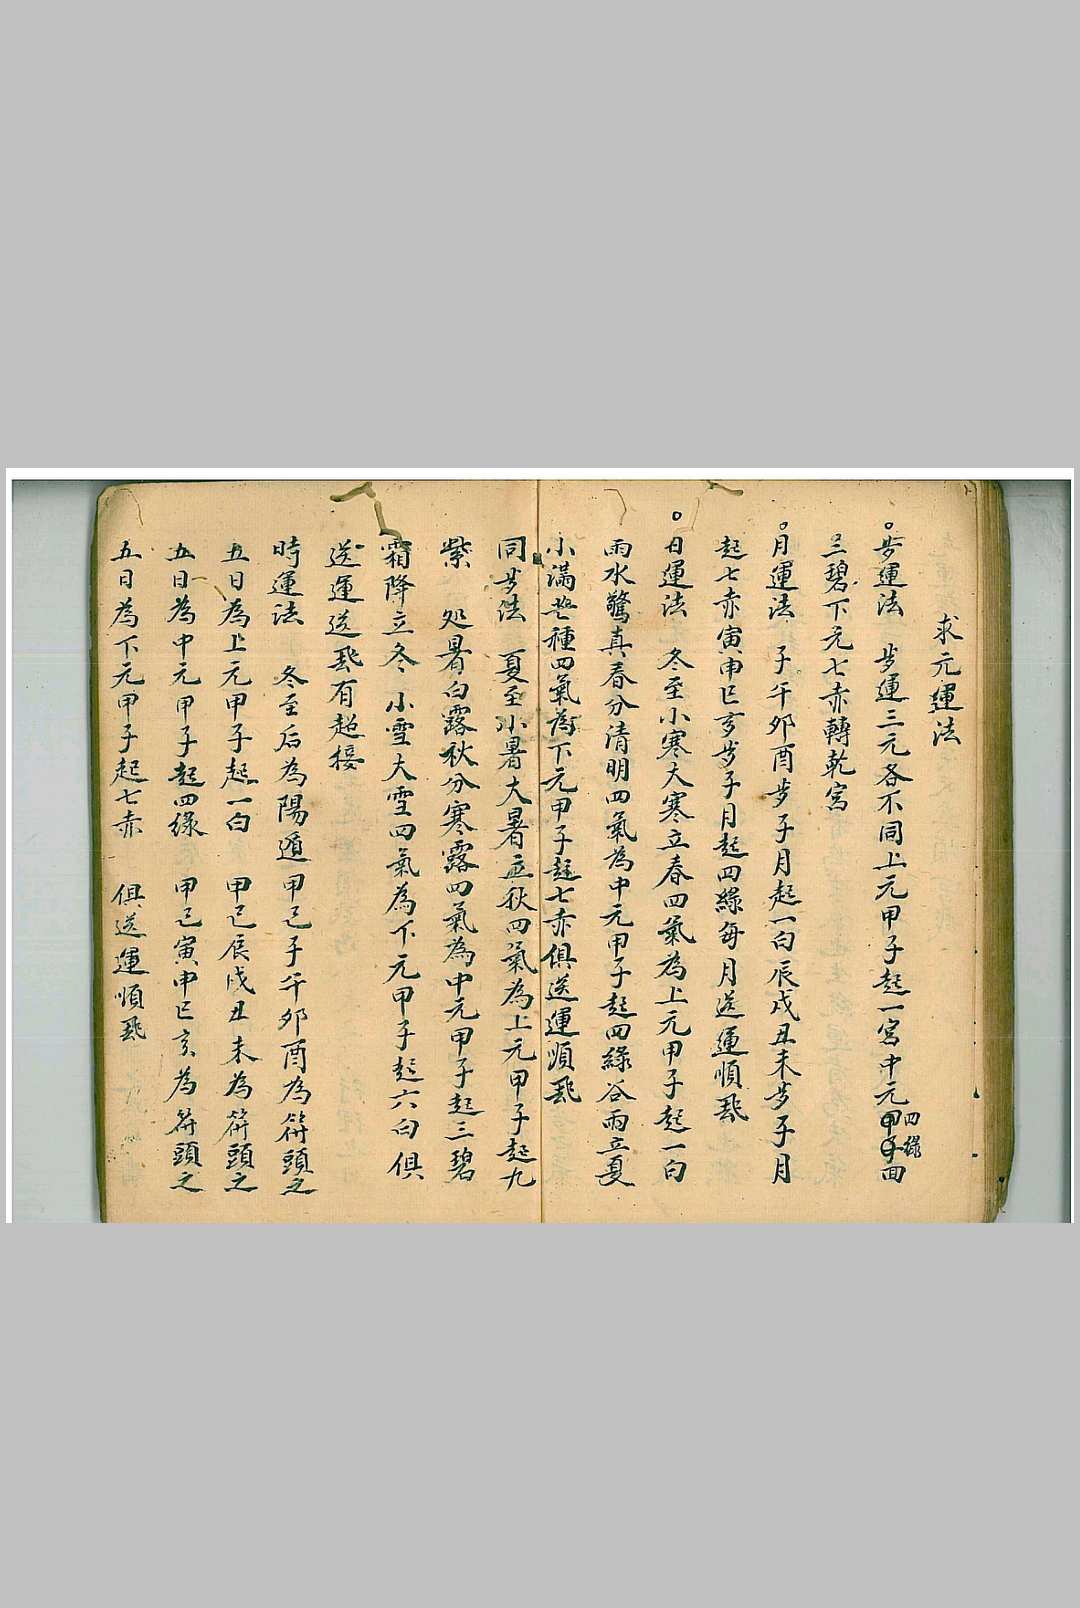 求元運法
歩運法 歩運三元各不同上元甲子起一宮中元甲子面
四綠
三碧下元七赤轉乾宮
月運法 子午卯酉歩子月起一白辰戌丑未歩子月
起七赤寅申巳亥歩子月起四綠每月送運順飛
日運法 冬至小寒大寒立春四氣為上元甲子起一白
雨水驚真春分清明四氣為中元甲子起四綠谷雨立夏
小滿芒種四氣為下元甲子起七赤俱送運順飛
同歩法 夏至小暑大暑立秋四氣為上元甲子起九
紫 処暑白露秋分寒露四氣為中元甲子起三碧
霜降立冬小雪大雪四氣為下元甲子起六白俱
送運送飛有超接
時運法 冬至后為陽遁甲己子午卯酉為符頭之
五日為上元甲子起一白 甲己辰戌丑未為符頭之
五日為中元甲子起四綠 甲己寅申巳亥為符頭之
五日為下元甲子起七赤 俱送運順飛